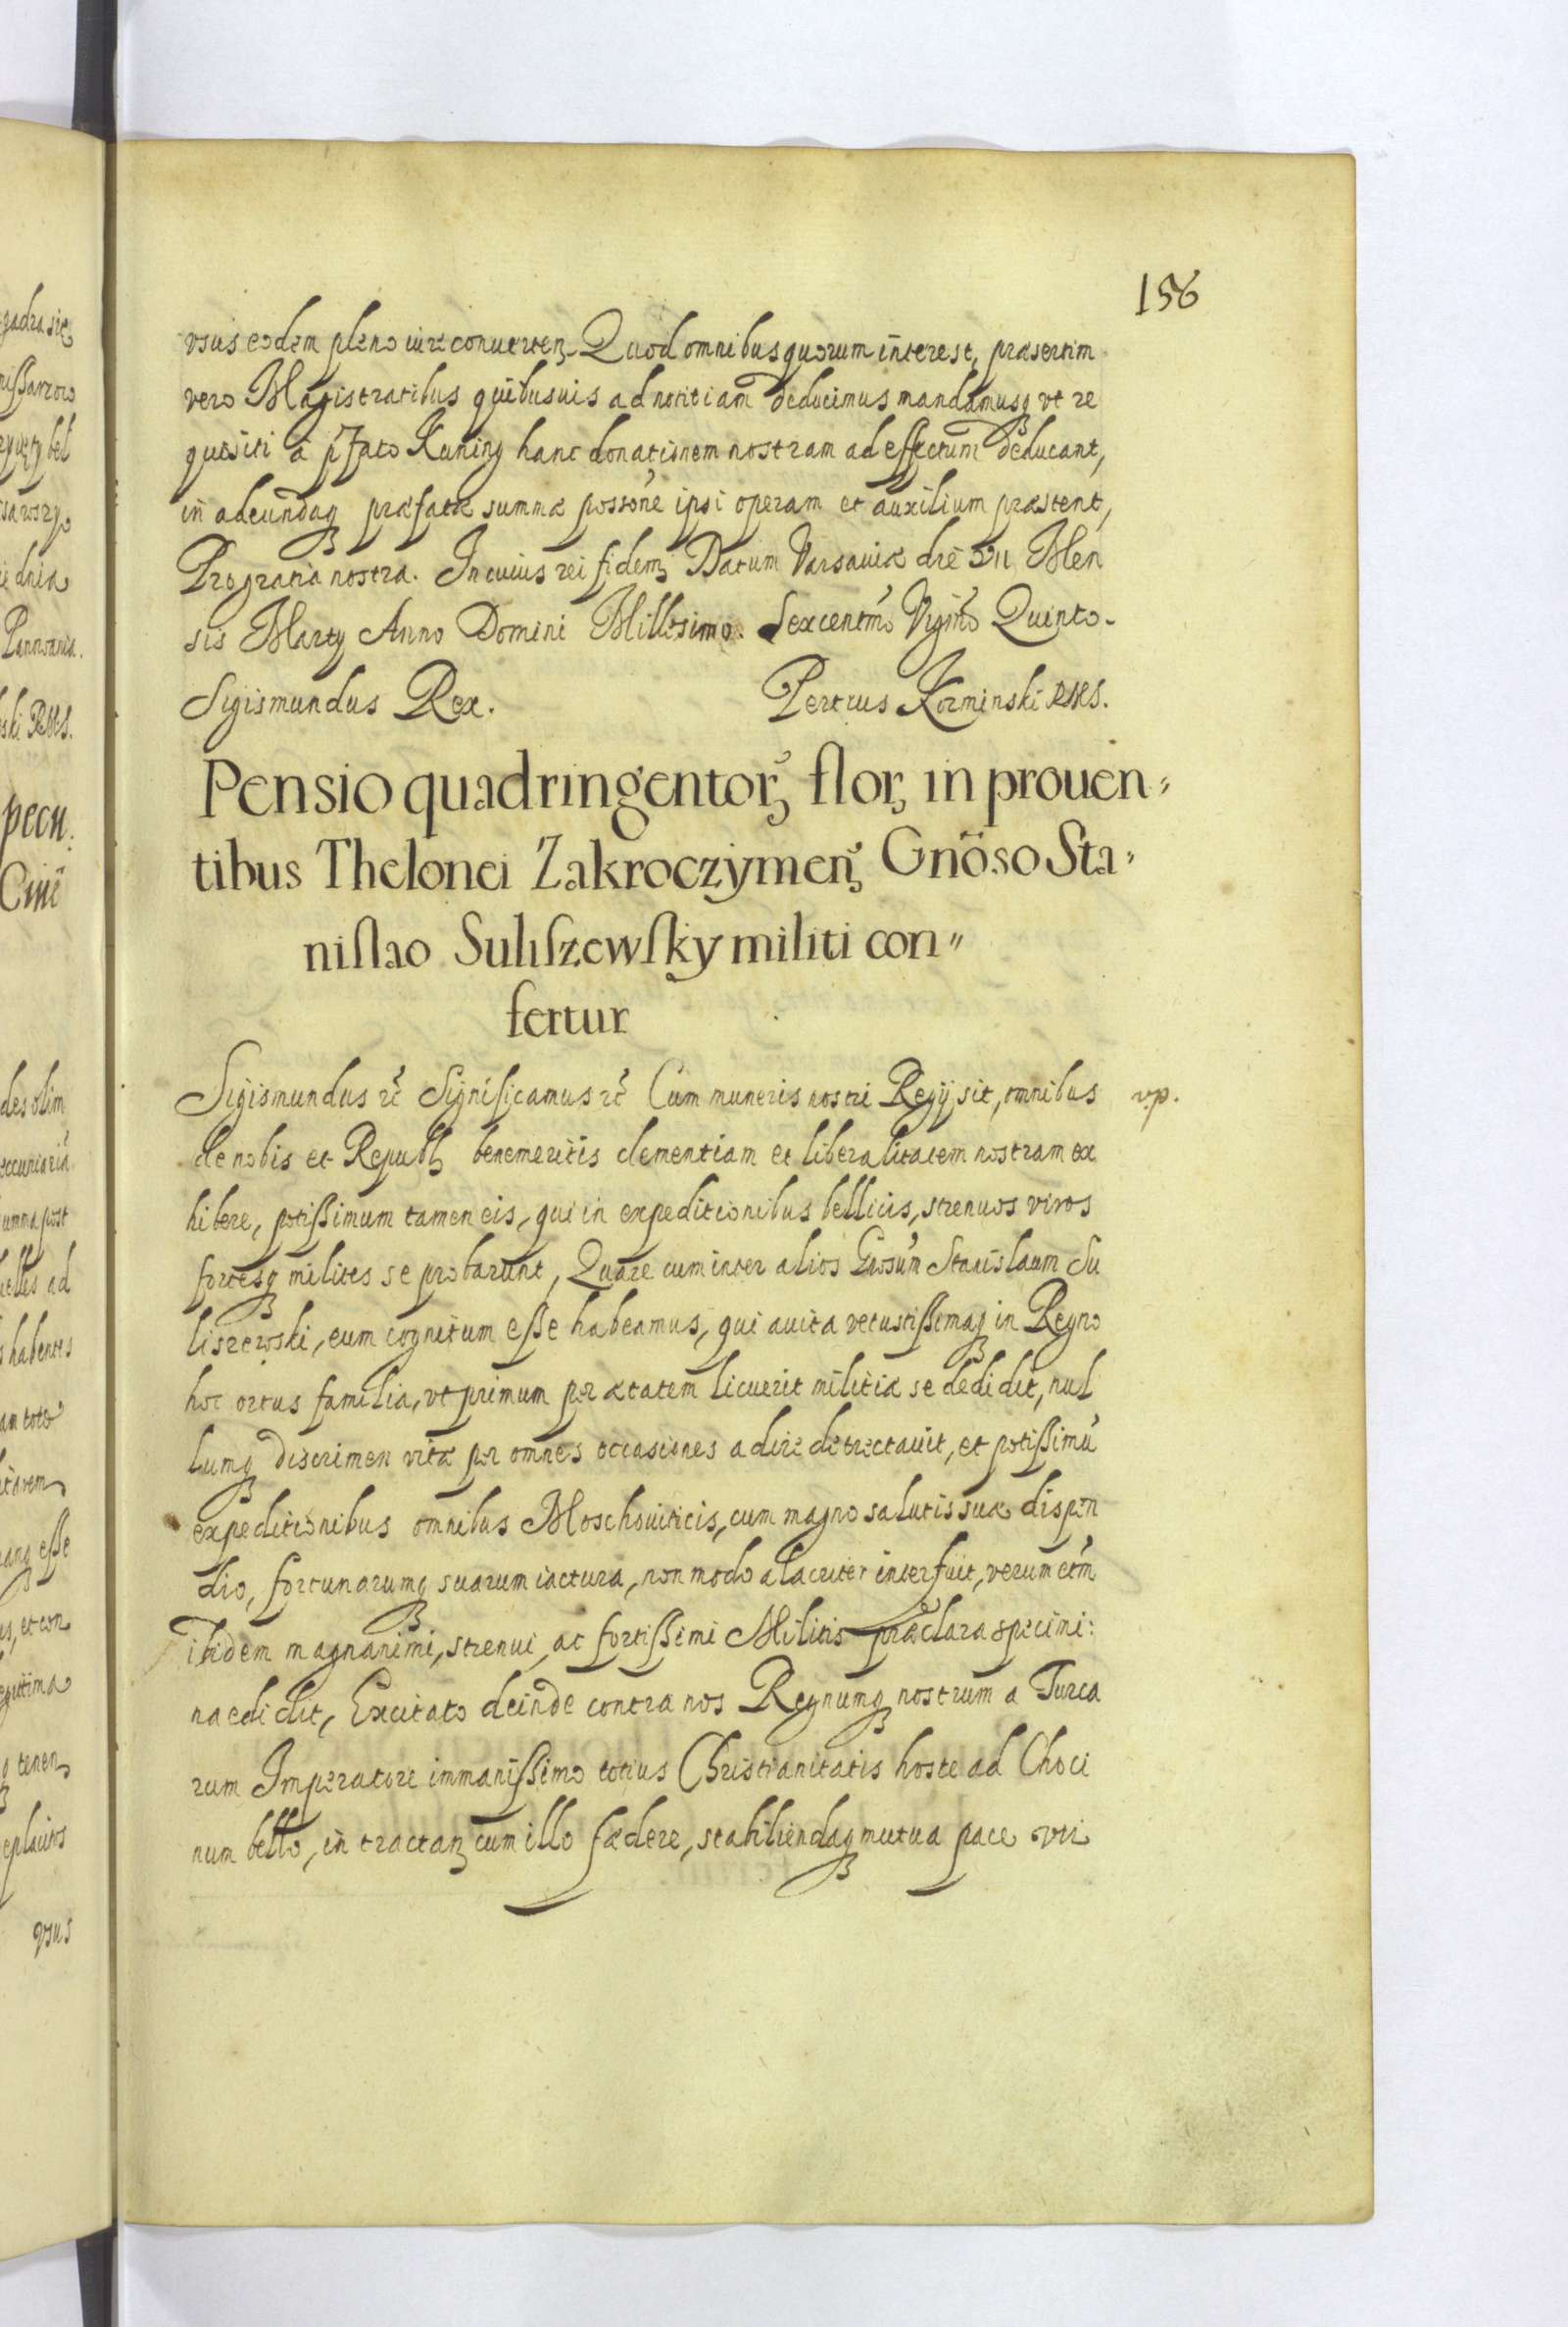 156
vsus eodem pleno iure conuerten. Quod omnibus quorum interest, præsertim
vero Magistratibus quibusuis ad notitiam deducimus mandamusq vt re
quisiti a pfato Kuning hanc donationem nostram ad effectum deducant,
in adeundaq præfatæ summæ possone ipsi operam et auxilium præstent,
Pro gratia nostra. In cuius rei fidem Datum Varsauiæ die VII Men
sis Marty Anno Domini Millesimo Sexcentmo Vigmo Quinto.
Sigismundus Rex. Petrus Korminski RMS.
Pensio quadringentor flor in prouen„
tibus Thelonei Zakroczymen Gnoso Sta„
nislao Suliszewsky militi con„
fertur
Sigismundus etc Significamus etc Cum muneris nostri Regij sit, omnibus vp.
de nobis et Republ benemeritis clementiam et liberalitatem nostram ex
hibere, potissimum tamen eis, qui in expeditionibus bellicis, strenuos viros
fortesq milites se probarunt, Quare cum inter alios Gnosum Stanislaum Su
liszewski, eum cognitum esse habeamus, qui auita vetustissimaq in Regno
hoc ortus familia, vt primum per ætatem licuerit militiæ se dedidit, nul
lumq discrimen vitæ per omnes occasiones adire detrectauit, et potissimũ
expeditionibus omnibus Moschouiticis, cum magno salutis suæ dispen
dio, fortunarumq suarum iactura, non modo alacriter interfuit, verum etm
itidem magnanimi, strenui, ac fortissimi Militis præclara specimi:
na edidit, Excitato deinde contra nos Regnumq nostrum a Turca
rum Imperatore immanissimo totius Christianitatis hoste ad Choci
num bello, in tractan cum illo fædere, stabiliendaq mutua pace vti